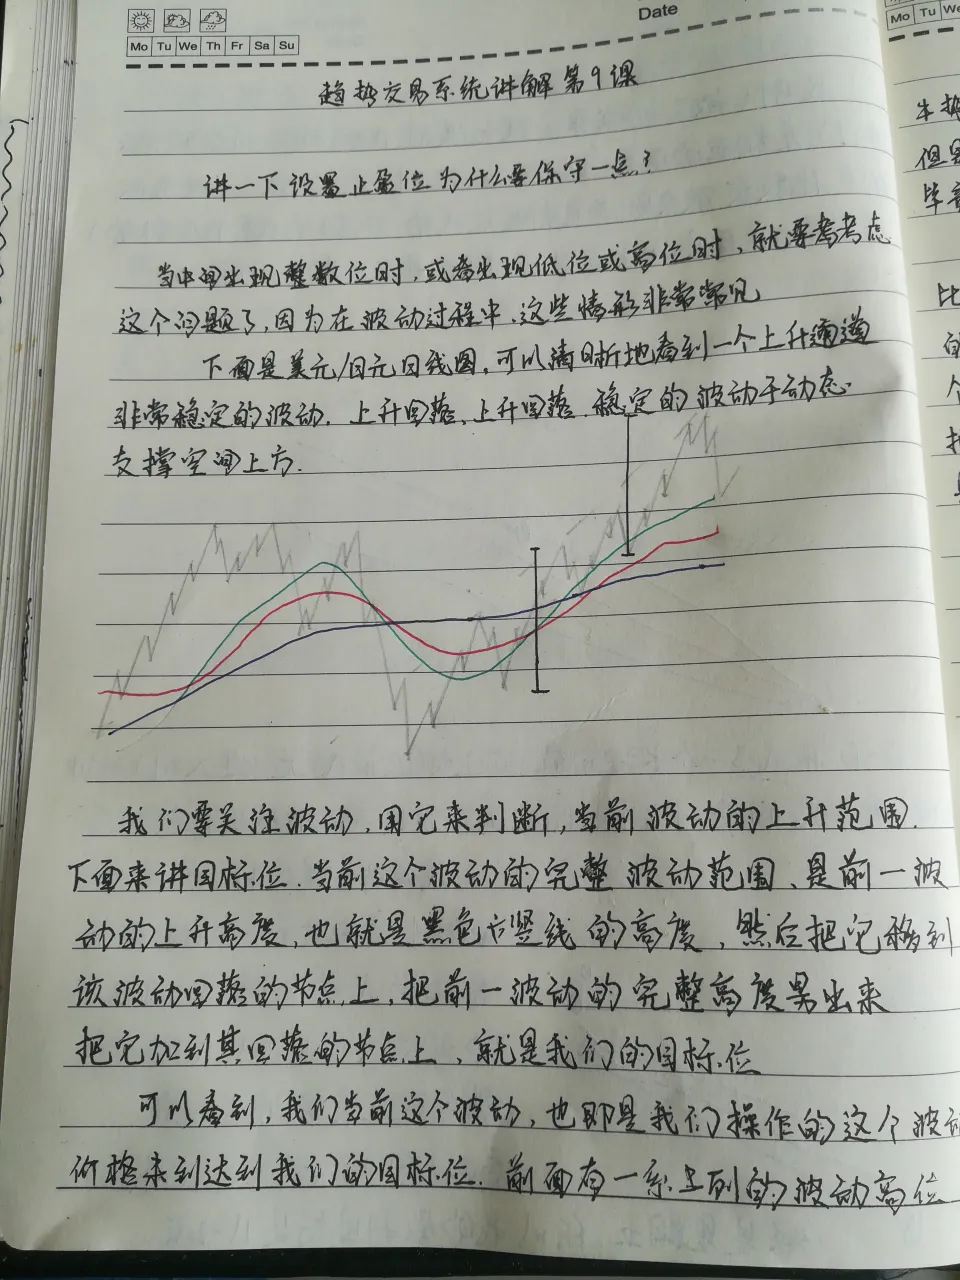 Date
Mo Tu We Th Fr Sa Su
Mo Tu We
趋势交易系统讲解第9课
讲一下设置止盈位为什么要保守一点?
当中间出现整数位时,或者出现低位或高位时,就要考考虑
这个问题了,因为在波动过程中,这些情形非常常见
下面是美元/日元日线图,可以清晰地看到一个上升通道
非常稳定的波动,上升回落,上升回落,稳定的波动于动态
支撑空间上方.
我们要关注波动,用它来判断,当前波动的上升范围.
下面来讲目标位.当前这个波动的完整波动范围、是前一波
动的上升高度,也就是黑色 竖线的高度,然后把它移到
该波动回落的节点上,把前一波动的完整高度 出来
把它加到其回落的节点上,就是我们的目标位
可以看到,我们当前这个波动,也即是我们操作的这个波动
价格未到达到我们的目标位.前面有一系列的波动高位
但
毕竟
比
的
个